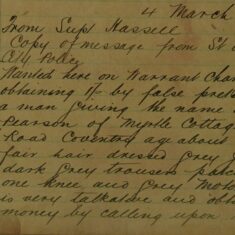 4 March
From Supt Hassell
Copy of message from St
City Police
Wanted here on Warrant Char
obtaining by false pret
a man giving the name
Pearson of Myrtle Cottag
Road Coventry age about
fair hair dressed Grey
dark Grey trousers patc
one knee and Grey Moto
is very talkative and obt
money by calling upon